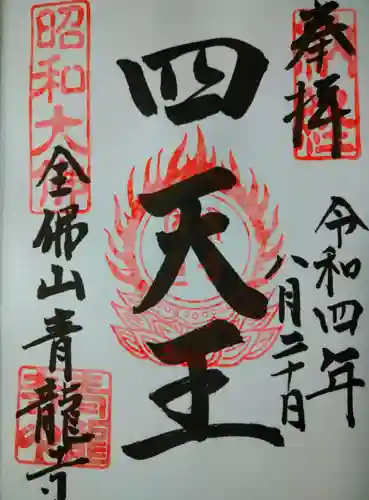 奉拝
令和四年
八月二十日
四天王
昭和大佛
全佛山青龍寺
青龍寺